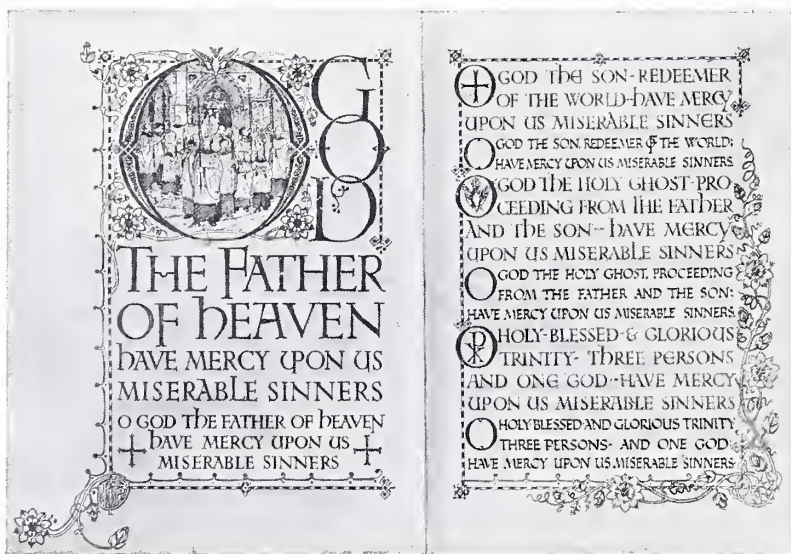 O GOD
THE FATHER
OF hEAVEN
hAVE MERCY UPON US
MISERABLE SINNERS
O GOD ThE FATHER OF hEAVEN
hAVE MERCY UPON US
MISERABLE SINNERS
O GOD ThE SON-REDEEMER
OF THE WORLD-hAVE MERCY
UPON US MISERABLE SINNERS
O GOD THE SON, REDEEMER OF THE WORLD:
HAVE MERCY UPON US MISERABLE SINNERS.
O GOD ThE HOLY GHOST-PRO
CEEDING FROM ThE FAThER
AND ThE SON-hAVE MERCY
UPON US MISERABLE SINNERS
O GOD THE HOLY GHOST, PROCEEDING
FROM THE FATHER AND THE SON:
HAVE MERCY UPON US MISERABLE SINNERS.
O HOLY-BLESSED-& GLORIOUS
TRINITY-ThREE PERSONS
AND ONE GOD-HAVE MERCY
UPON US MISERABLE SINNERS
O HOLY BLESSED AND GLORIOUS TRINITY
THREE PERSONS-AND ONE GOD:
HAVE MERCY UPON US MISERABLE SINNERS